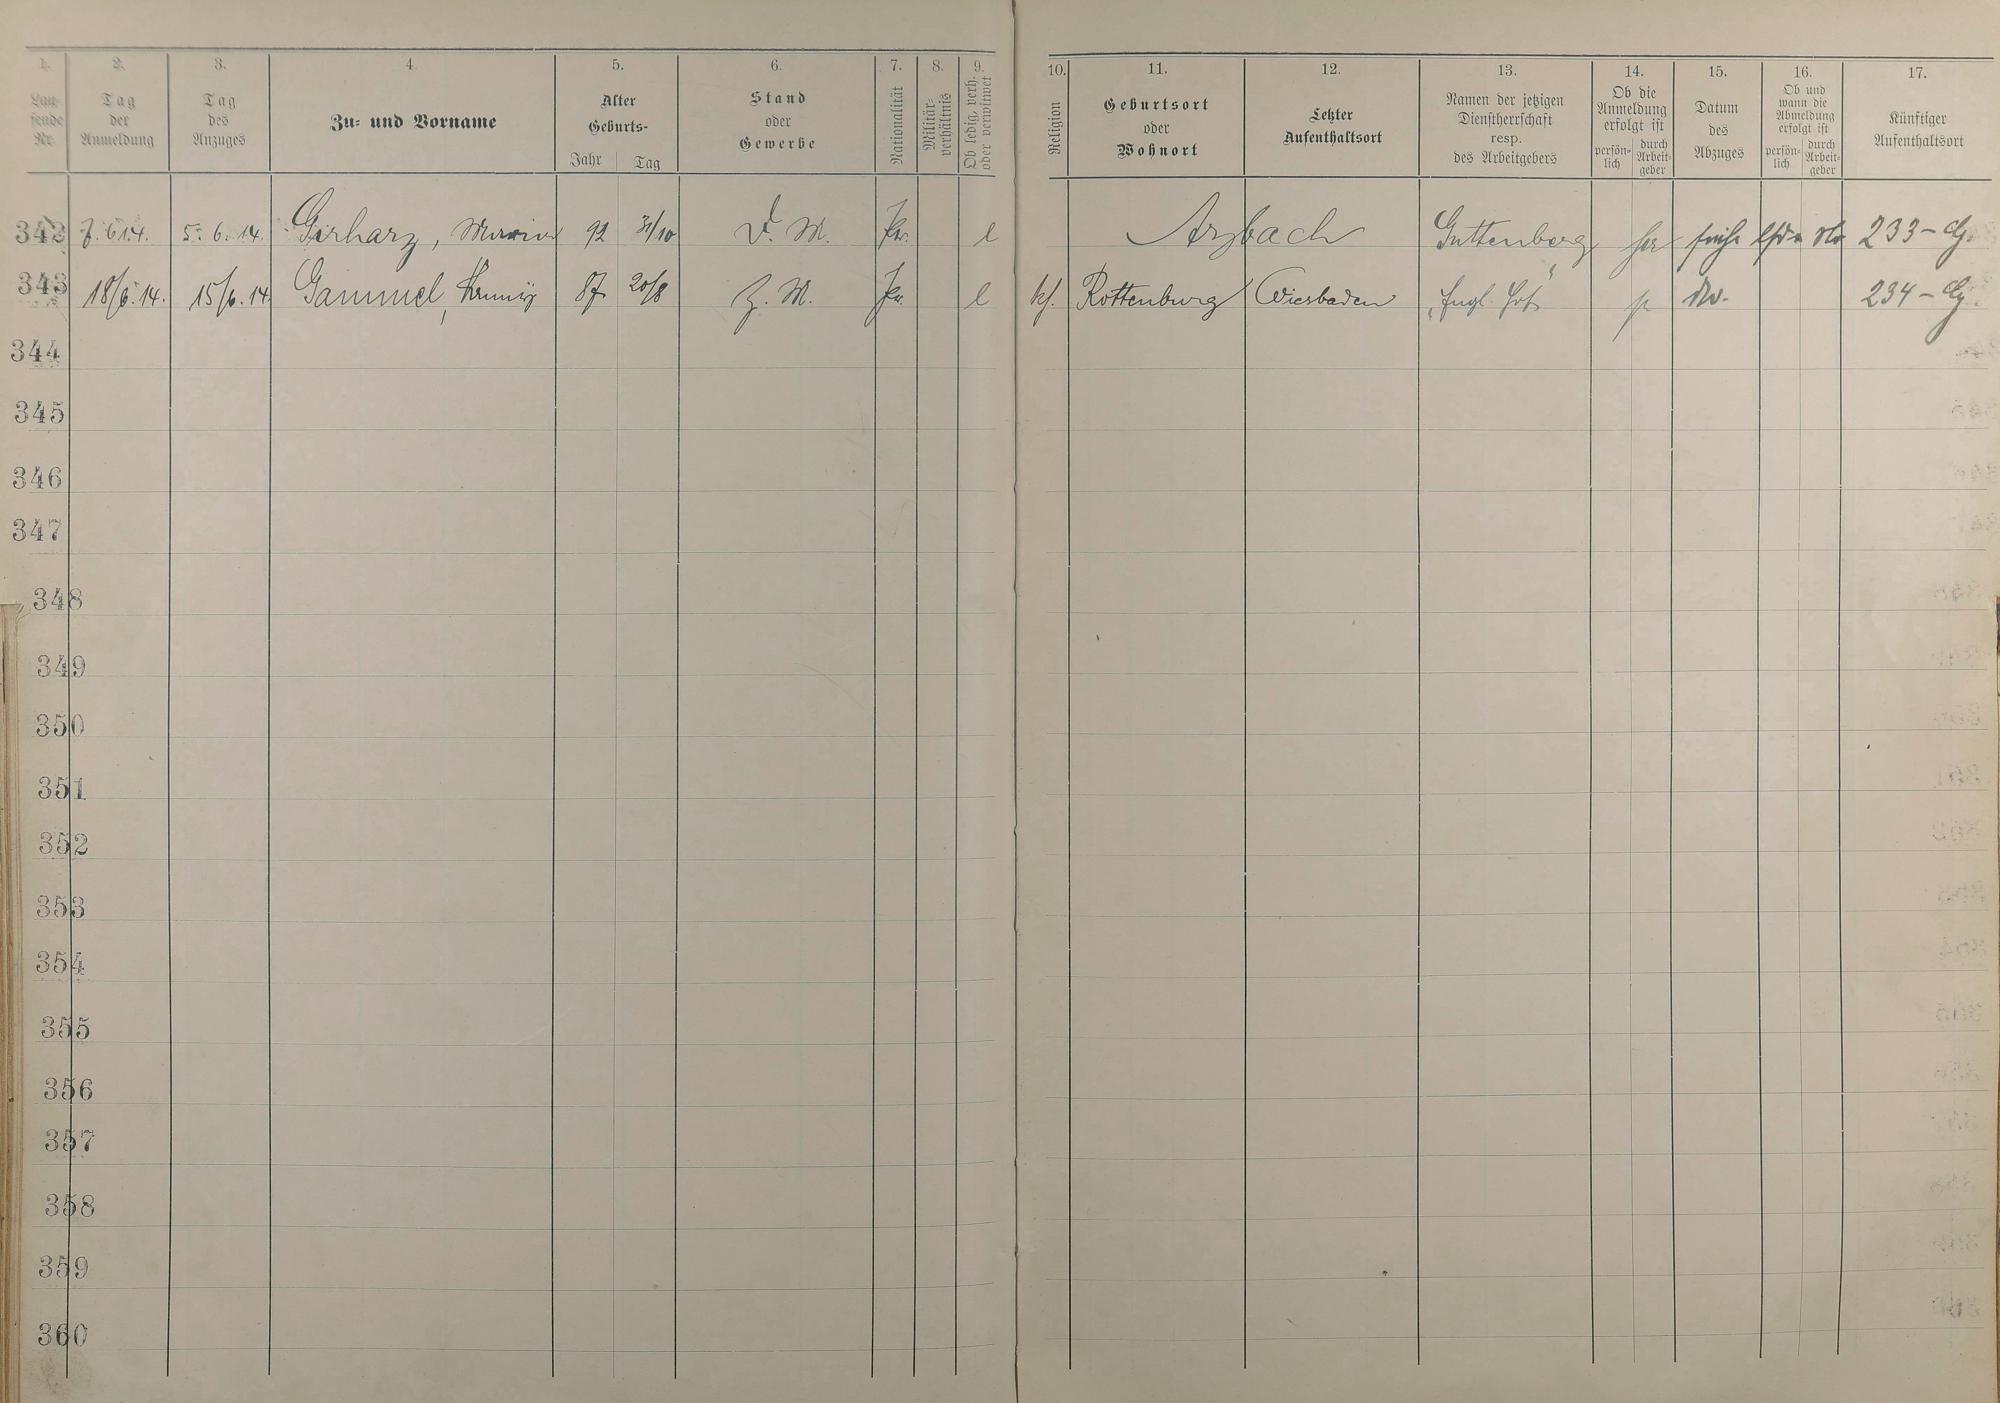 1. 2. 3. 4. 5. 6. 7. 8. 9. 10. 11. 12. 13. 14. 15. 16. 17.
Lau-
fende
Nr.
Tag
der
Anmeldung
Tag
des
Anzuges
Zu- und Vorname
Alter
Geburts-
Jahr Tag
Stand
oder
Gewerbe
Nationalität
Militär-
verhältnis
Ob ledig, verh.
oder verwitwet
Religion
Geburtsort
oder
Wohnort
Letzter
Aufenthaltsort
Namen der jetzigen
Dienstherrschaft
resp.
des Arbeitgebers
Ob die
Anmeldung
erfolgt ist
persön-
lich
durch
Arbeit-
geber
Datum
des
Abzuges
Ob und
wann die
Abmeldung
erfolgt ist
persön-
lich
durch
Arbeit-
geber
Künftiger
Aufenthaltsort
342 7. 6. 14. 5. 6. 14. Girharz, 92 31/10 D. M. Pr. l Arzbach Guttenberg 233
343 18/6. 14. 15/6. 14. Gammel, 87 20/8 Z. M. Pr. l k. Rottenburg Wiesbaden „Engl. Hof“ 234
344
345
346
347
348
349
350
351
352
353
354
355
356
357
358
359
360